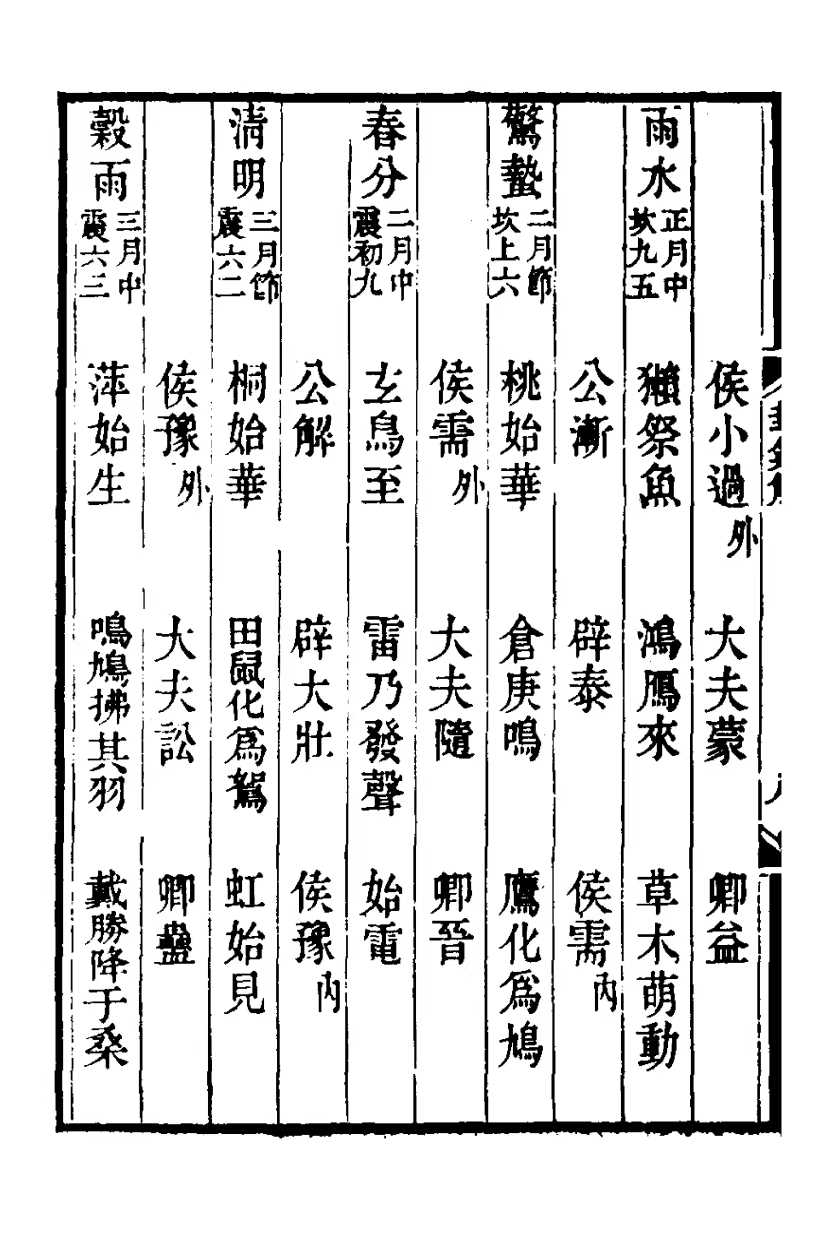 侯小過外 大夫蒙 卿益
雨水正月中坎九五 獺祭魚 鴻鴈來 草木萌動
公漸 辟泰 侯需內
驚蟄二月節坎上六 桃始華 倉庚鳴 鷹化爲鳩
侯需外 大夫隨 卿晉
春分二月中震初九 玄鳥至 雷乃發聲 始電
公解 辟大壯 侯豫內
清明三月節震六二 桐始華 田鼠化爲鴽 虹始見
侯豫外 大夫訟 卿蠱
穀雨三月中震六三 萍始生 鳴鳩拂其羽 戴勝降于桑